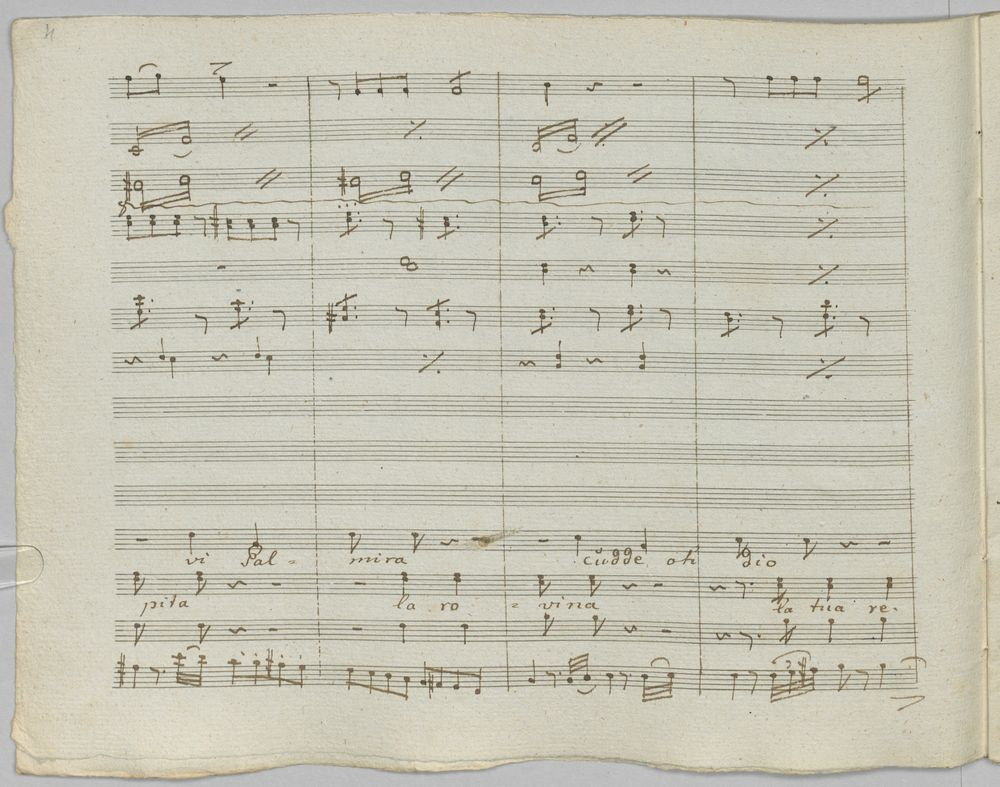 4
vi Pal - mira cudde oh dio
pita la ro - vina la tua re -